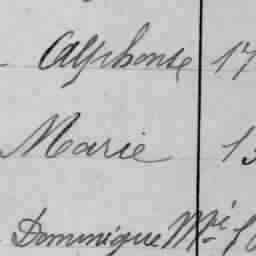 Alphonse 17
Marie 13
Dominique Mie